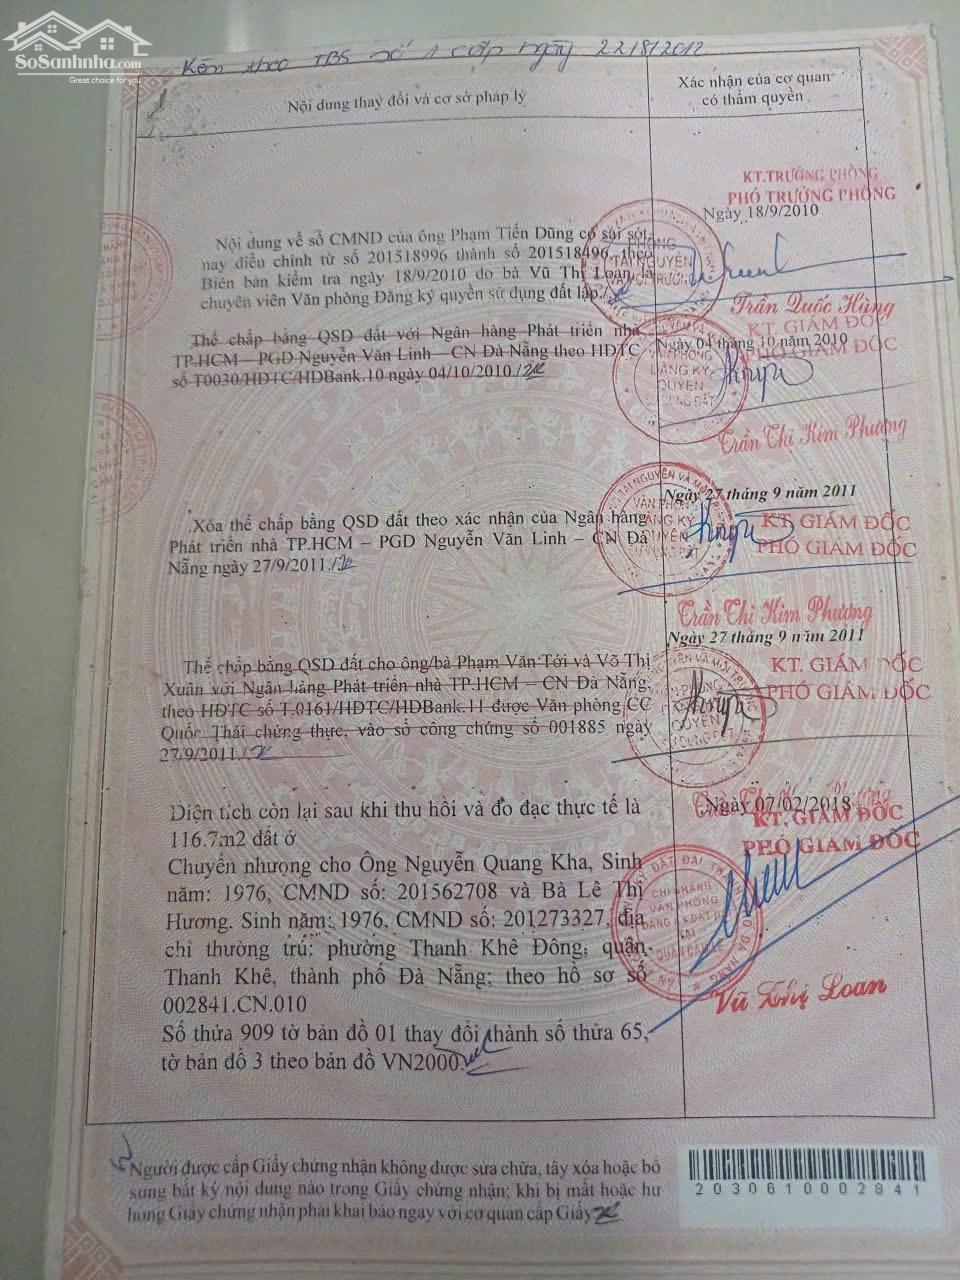 SoSanhnha.com
Great choice for you
Kèm theo TBS số 1 cấp ngày 22/8/2012
Nội dung thay đổi và cơ sở pháp lý
Xác nhận của cơ quan
có thẩm quyền
KT.TRƯỞNG PHÒNG
PHÓ TRƯỞNG PHÒNG
Ngày 18/9/2010
Nội dung về số CMND của ông Phạm Tiến Dũng có sai sót,
nay điều chỉnh từ số 201518996 thành số 201518496 theo
Biên bản kiểm tra ngày 18/9/2010 do bà Vũ Thị Loan là
chuyên viên Văn phòng Đăng ký quyền sử dụng đất lập./.
Trần Quốc Hùng
Thế chấp bằng QSD đất với Ngân hàng Phát triển nhà
TP.HCM – PGD Nguyễn Văn Linh – CN Đà Nẵng theo HĐTC
số T0030/HĐTC/HDBank.10 ngày 04/10/2010./.
KT. GIÁM ĐỐC
Ngày 04 tháng 10 năm 2010
PHÓ GIÁM ĐỐC
Trần Thị Kim Phượng
Xóa thế chấp bằng QSD đất theo xác nhận của Ngân hàng
Phát triển nhà TP.HCM – PGD Nguyễn Văn Linh – CN Đà
Nẵng ngày 27/9/2011./.
Ngày 27 tháng 9 năm 2011
KT GIÁM ĐỐC
PHÓ GIÁM ĐỐC
Trần Thị Kim Phượng
Thế chấp bằng QSD đất cho ông/bà Phạm Văn Tới và Võ Thị
Xuân với Ngân hàng Phát triển nhà TP.HCM – CN Đà Nẵng
theo HĐTC số T.0161/HĐTC/HDBank.11 được Văn phòng CC
Quốc Thái chứng thực, vào sổ công chứng số 001885 ngày
27/9/2011./.
Ngày 27 tháng 9 năm 2011
KT. GIÁM ĐỐC
PHÓ GIÁM ĐỐC
Diện tích còn lại sau khi thu hồi và đo đạc thực tế là
116.7m2 đất ở
Chuyển nhượng cho Ông Nguyễn Quang Kha, Sinh
năm: 1976, CMND số: 201562708 và Bà Lê Thị
Hương. Sinh năm: 1976, CMND số: 201273327, địa
chỉ thường trú: phường Thanh Khê Đông, quận
Thanh Khê, thành phố Đà Nẵng; theo hồ sơ số
002841.CN.010
Số thửa 909 tờ bản đồ 01 thay đổi thành số thửa 65,
tờ bản đồ 3 theo bản đồ VN2000.
Ngày 07/02/2018
KT. GIÁM ĐỐC
PHÓ GIÁM ĐỐC
Vũ Thị Loan
Người được cấp Giấy chứng nhận không được sửa chữa, tẩy xóa hoặc bổ
sung bất kỳ nội dung nào trong Giấy chứng nhận; khi bị mất hoặc hư
hỏng Giấy chứng nhận phải khai báo ngay với cơ quan cấp Giấy
2030610002841